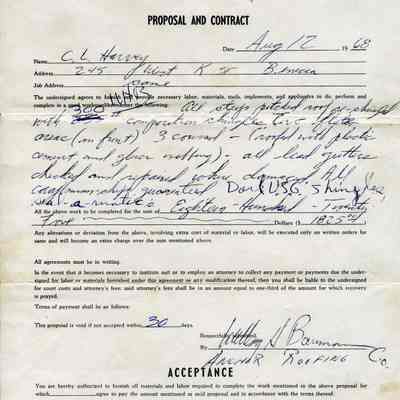 PROPOSAL AND CONTRACT
Date Aug 12 1968
Name C. L. Harvey
Address 245 West K St Benicia
Job Address Same
The undersigned agrees to furnish all necessary labor, materials, tools, implements, and appliances to do perform and
complete in a good workmanlike manner the following: All steep pitched roof re-shingled
with 300 composition shingles
areas (on front) 3 covered - proofed with plastic
cement and glass matting - all lead gutters
checked and repaired where damaged. All
workmanship guaranteed Dark U.S.G. Shingles,
All the above work to be completed for the sum of Eighteen-Hundred - Twenty
Five Dollars ($ 1825.00)
Any alterations or deviation from the above, involving extra cost of material or labor, will be executed only on written orders for
same and will become an extra charge over the sum mentioned above.
All agreements must be in writing.
In the event that it becomes necessary to institute suit or to employ an attorney to collect any payment or payments due the under-
signed for labor or materials furnished under this agreement or any modification thereof, then you shall be liable to the undersigned
for court costs and attorney's fees; said attorney's fees shall be in an amount equal to one-third of the amount for which recovery
is prayed.
Terms of payment shall be as follows:
This proposal is void if not accepted within 30 days.
Respectfully submitted,
By
Anchor Roofing Co.
ACCEPTANCE
You are hereby authorized to furnish all materials and labor required to complete the work mentioned in the above proposal for
which agree to pay the amount mentioned in said proposal and in accordance with the terms thereof.